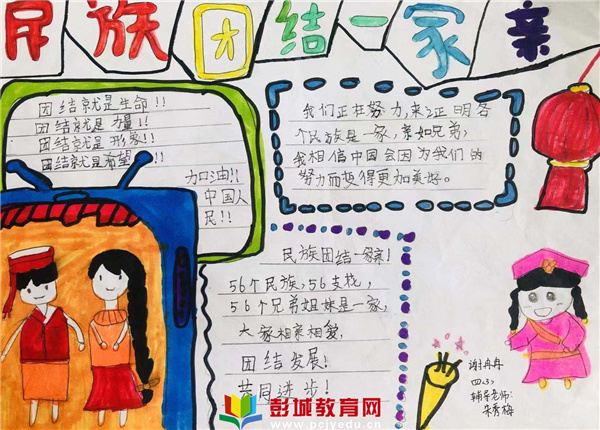 民族团结一家亲
团结就是生命!!
团结就是力量!!
团结就是形象!!
团结就是希望!!
加油!!
中国人
民!!
我们正在努力,来证明各
个民族是一家,亲如兄弟,
我相信中国会因为我们的
努力而变得更加美好。
民族团结一家亲!
56个民族,56支花,
56个兄弟姐妹是一家,
大家相亲相爱,
团结发展!
共同进步!
谢冉冉
四(3)
辅导老师:
宋秀梅
彭城教育网
www.pcjyedu.cn